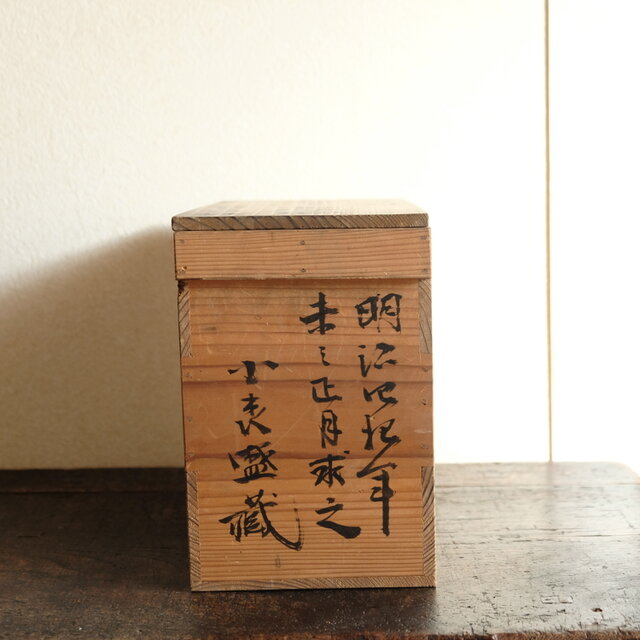 明治四拾年
未之正月求之
小表盛藏